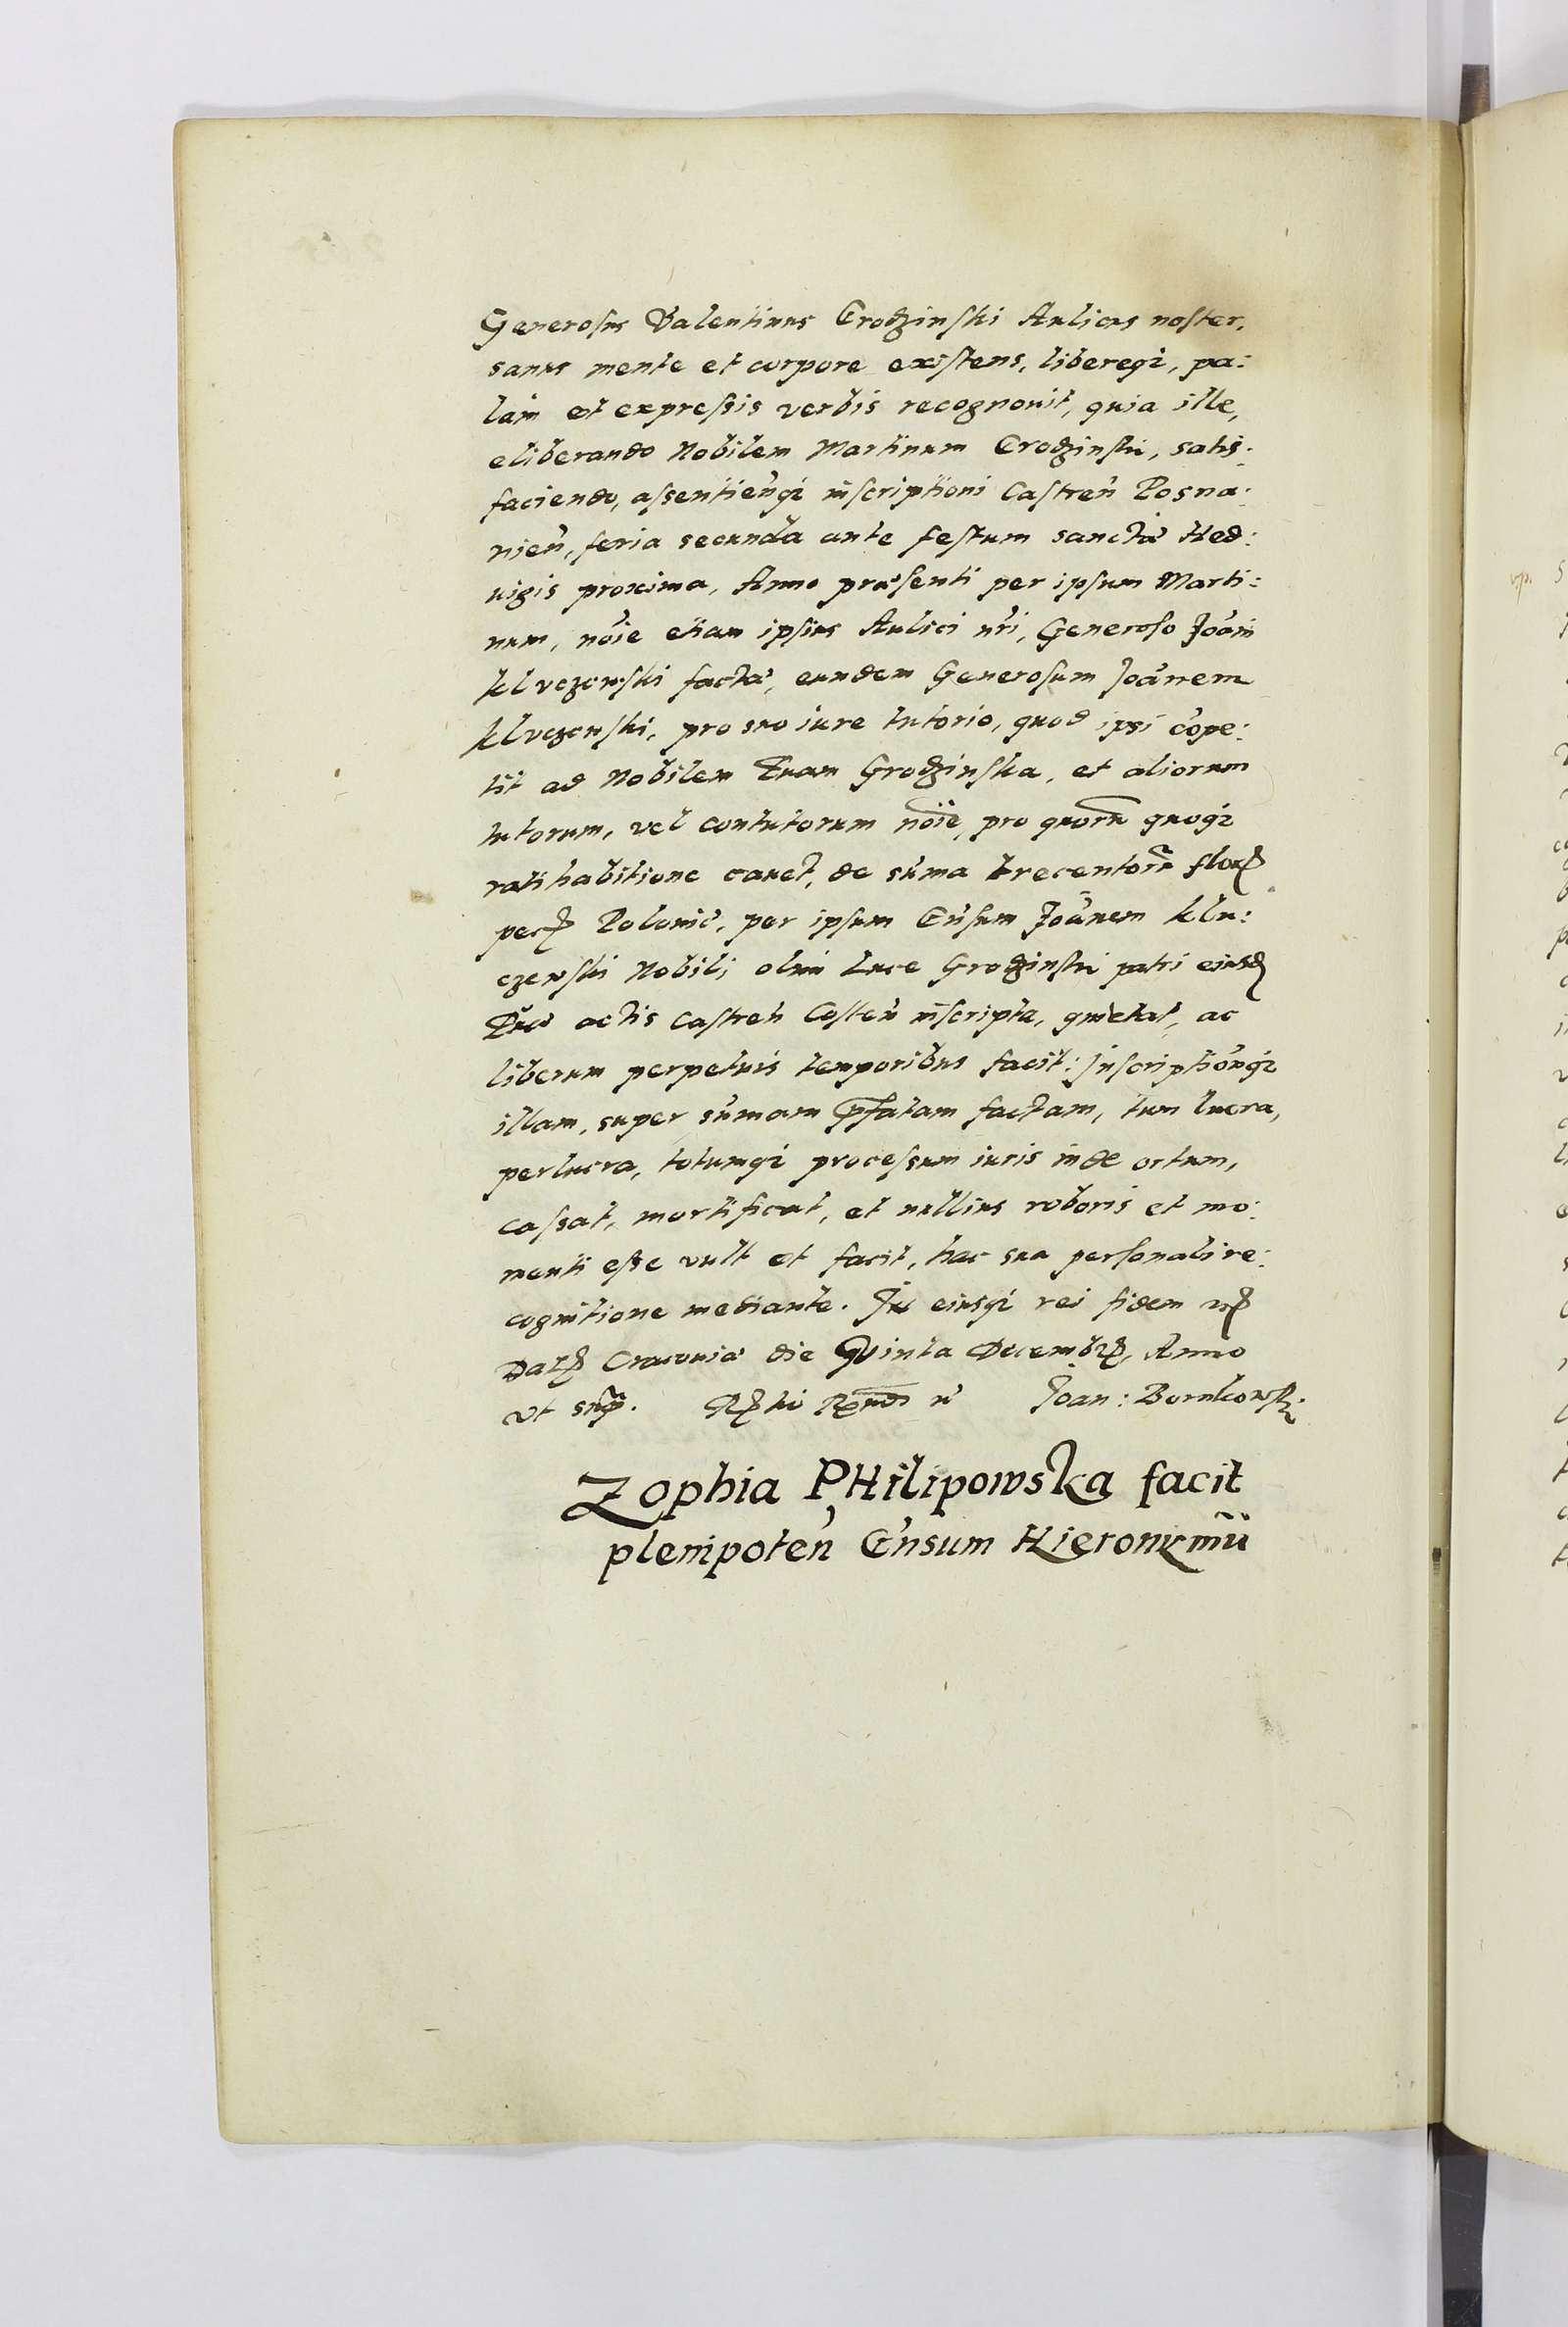 Generosus Valentinus Grodzinski Aulicus noster,
sanus mente et corpore existens, libereq₃, pa:
lam et expressis verbis recognouit, quia ille,
eliberando Nobilem Martinum Grodzinski, satis:
faciendo, assentienq₃ inscriptioni Castren̄ Posna:
nien̄, feria secunda ante festum sanctæ Hed:
uigis proxima, Anno præsenti per ipsum Marti:
num, nōie etiam ipsius Aulici nr̄i, Generoso Joan̄i
Kluczewski factæ, eundem Generosum Joānem
Kluczewski, pro suo iure tutorio, quod ipsi cōpe:
tit ad Nobilem Euam Grodzinska, et aliorum
tutorum, vel contutorum nōie, pro quorū quoq₃
ratihabitione cauet, de sum̄a trecentorū flor̄
pec̄ Polonic̄, per ipsum Gn̄sum Joānem Klu:
czewski Nobili olim Luce Grodzinski patri eiusd̄
Euæ actis Castren̄ Costen̄ inscripta, quietat, ac
liberum perpetuis temporibus facit: Inscriptionq₃
illam, super sum̄am p̄fatam factam, tum lucra,
perlucra, totumq₃ processum iuris inde ortum,
cassat, mortificat, et nullius roboris et mo:
menti esse vult et facit, hac sua personali re:
cognitione mediante. In eiusq₃ rei fidem
Dat̄ Cracouiæ die Quinta Decembr̄, Anno
vt sup̄. Joan: Bornkowski
Zophia PHilipowska facit
plenipoten̄ Gn̄sum Hieronymū
vp.